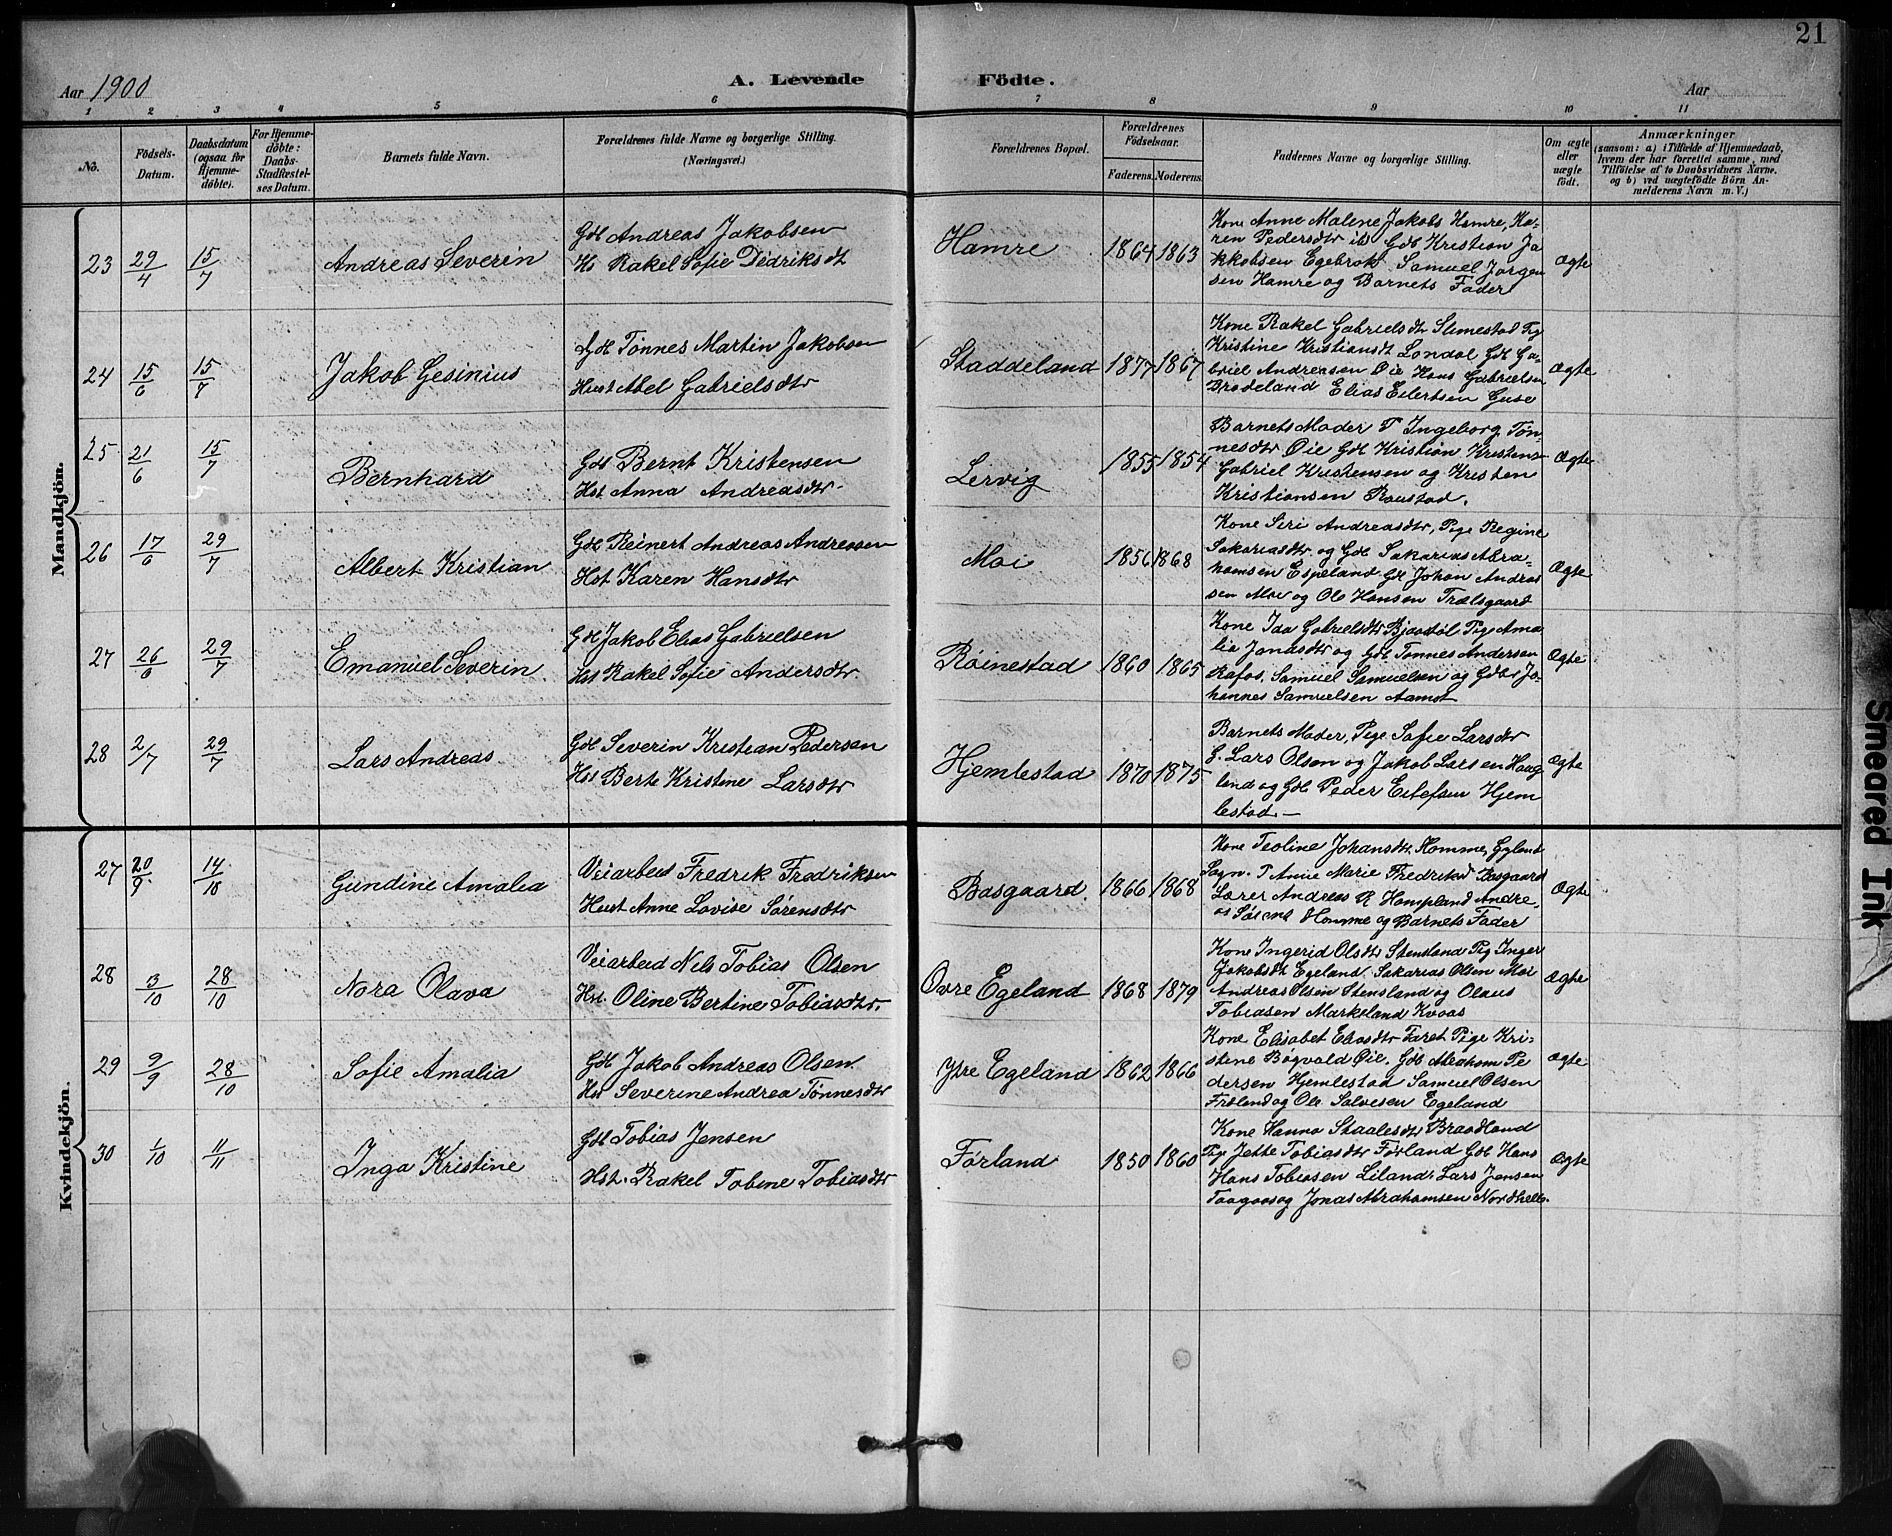 21
Aar 1900 A. Levende Födte. Aar
1 2 3 4 5 6 7 8 9 10 11
No. Födsels-Datum. Daabsdatum (ogsaa for Hjemmedöbte). For Hjemmedöbte: Daabs-Stadfæstelses Datum. Barnets fulde Navn. Forældrenes fulde Navne og borgerlige Stilling. (Næringsvei.) Forældrenes Bopæl. Forældrenes Födselsaar. Faderens. Moderens. Faddernes Navne og borgerlige Stilling. Om ægte eller uægte födt. Anmærkninger
(saasom: a) i Tilfælde af Hjemmedaab,
hvem der har forrettet samme, med
Tilföielse af to Daabsvidners Navne.
og b) ved uægtefödte Börn An-
melderens Navn m. V.)
Mandkjön.
23 29/4 15/7 Andreas Severin
Gdb Andreas Jakobsen
Hs Rakel Sofie Didriksdt
Hamre 1864 1863
Kone Anne Malene Jakobs Hamre, Ka-
ren Pedersdtr ib Gdb Kristian Ja
kkobsen Egebrok Samuel Jørgen
sen Hamre og Barnets Fader
Ægte
24 15/6 15/7 Jakob Gesinius
Gdb Tönnes Martin Jakobsen
Hust Abel Gabrielsdtr
Staddeland 1877 1867
Kone Rakel Gabrielsdt Slimestad Pig
Kristine Kristiansdt Londal Gdb Ga-
briel Andreasen Øie Hans Gabrielsen
Brødeland Elias Eilertsen Guse
Ægte
25 21/6 15/7 Bernhard
Gdb Bernt Kristensen
Hst Anna Andreasdtr.
Lervig 1855 1854
Barnets Moder P Ingeborg Tøn-
nesdtr Øie Gdb Kristian Kristens
Gabriel Kristensen og Kristen
Kristiansen Raustad.
Ægte
26 17/6 29/7 Albert Kristian
Gdb Reinert Andreas Andreasen
Hst Karen Hansdtr
Moi 1856 1868
Kone Siri Andreasdtr, Pige Regine
Sakariasdtr. og Gdb Sakarias Abra-
hamsen Espeland Gdb Johan Andreas
sen Moe og Ole Hansen Trælsgaard
Ægte
27 26/6 29/7 Emanuel Severin
Gdb Jakob Elias Gabrielsen
Hst Rakel Sofie Andersdtr.
Röinestad 1860 1865
Kone Ida Gabrielsdtr Bjaadöl Pige Ama
lie Jonasdtr og Gdb Tønnes Andersen
Rafos, Samuel Samuelsen og Gdbr Jo-
hannes Samuelsen Aamot
Ægte
28 2/7 29/7 Lars Andreas
Gdb Severin Kristian Pedersen
Hst Berte Kristine Larsdtr
Hjemlestad 1870 1875
Barnets Moder, Pige Sofie Larsdtr
G. Lars Olsen og Jakob Larsen Haug
land og Gdb Peder Eilefsen Hjem
lestad.
Ægte
Kvindekjön.
27 20/9. 14/10 Gundine Amalia
Veiarbeid Fredrik Fredriksen
Hust Anne Lovise Sørensdtr
Basgaard. 1866 1868
Kone Teoline Johansdtr Homme, Gyland
Sogn. P Anne Marie Fredriksd Basgaard
Lærer Andreas R Hompland Andre
as Homme og Barnets Fader
Ægte
28 3/10 28/10 Nora Olava
Veiarbeid Nels Tobias Olsen
Hst. Oline Bertine Tobiasdtr.
Øvre Egeland 1868 1879
Kone Ingerid Olsdtr Stensland Pig Inger
Jakobsdt Egeland Sakarias Olsen Moi
Andreas Olsen Stensland og Olaus
Tobiasen Markeland Kvaas
Ægte
29 9/9 28/10 Sofie Amalia
Gdb Jakob Andreas Olsen.
Hst Severine Andrea Tønnesdtr
Ytre Egeland 1862 1866
Kone Elisabet Eliasdtr Faret Pige Kri-
stine Bøgvald Øie. Gdb Abraham Pe
dersen Hjemlestad Samuel Olsen
Frøland og Ole Salvesen Egeland
Ægte
30 1/10 11/11 Inga Kristine
Gdb Tobias Jensen
Hst. Rakel Tobine Tobiasdtr
Förland 1850 1860
Kone Hanna Staalesdtr Braadland
Pig Jette Tobiasdtr Förland Gdb Hans
Hans Tobiasen Liland Lars Jensen
og Jonas Abrahamsen Nordhelle.
Ægte
Smeared Ink